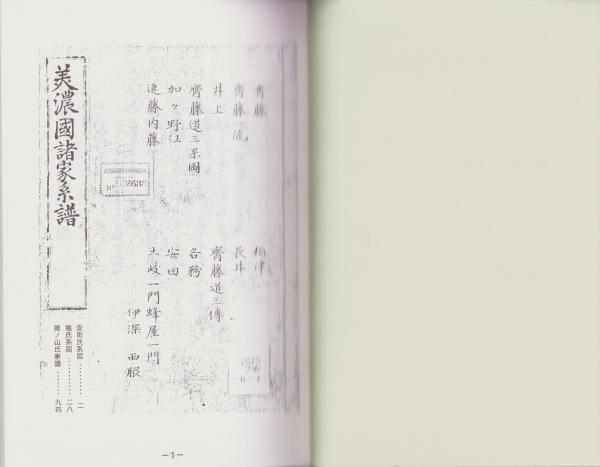 齋藤
齋藤一流
長井
井上
齋藤道三傳
齋藤道三系圖
各務
加々野江
安田
進藤内藤
土岐一門蜂屋一門
伊深 西脇
美濃國諸家系譜
安田氏系図………二
堀氏系図………二八
徳ノ山氏家譜……九四
No 263
2075
—1—